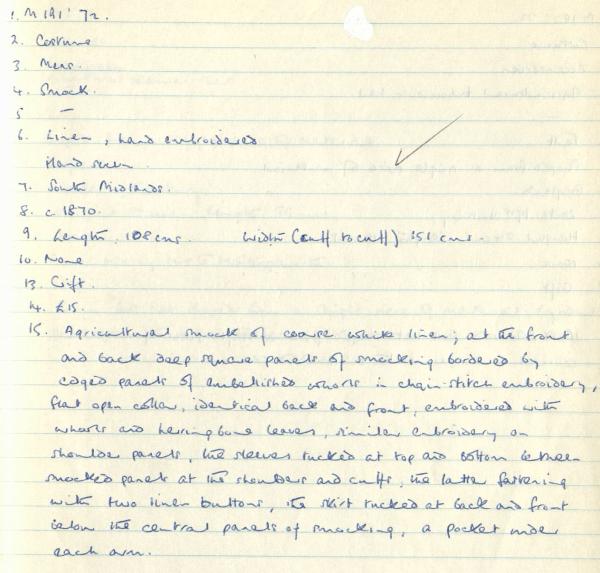 1. M 191 '72.
2. Costume
3. Mens.
4. Smock.
5 —
6. Linen, hand embroidered
Hand sewn.
7. South Midlands.
8. c. 1870.
9. Length, 108 cms. Width (cuff to cuff) 151 cms.
10. None
13. Gift.
14. £15.
15. Agricultural smock of coarse white linen; at the front
and back deep square panels of smocking bordered by
edged panels of embellished whorls in chain-stitch embroidery,
flat open collar, identical back and front, embroidered with
whorls and herringbone leaves, similar embroidery on
shoulder panels, the sleeves tucked at top and bottom between
smocked panels at the shoulders and cuffs, the latter fastening
with two linen buttons, the skirt tucked at back and front
below the central panels of smocking, a pocket under
each arm.